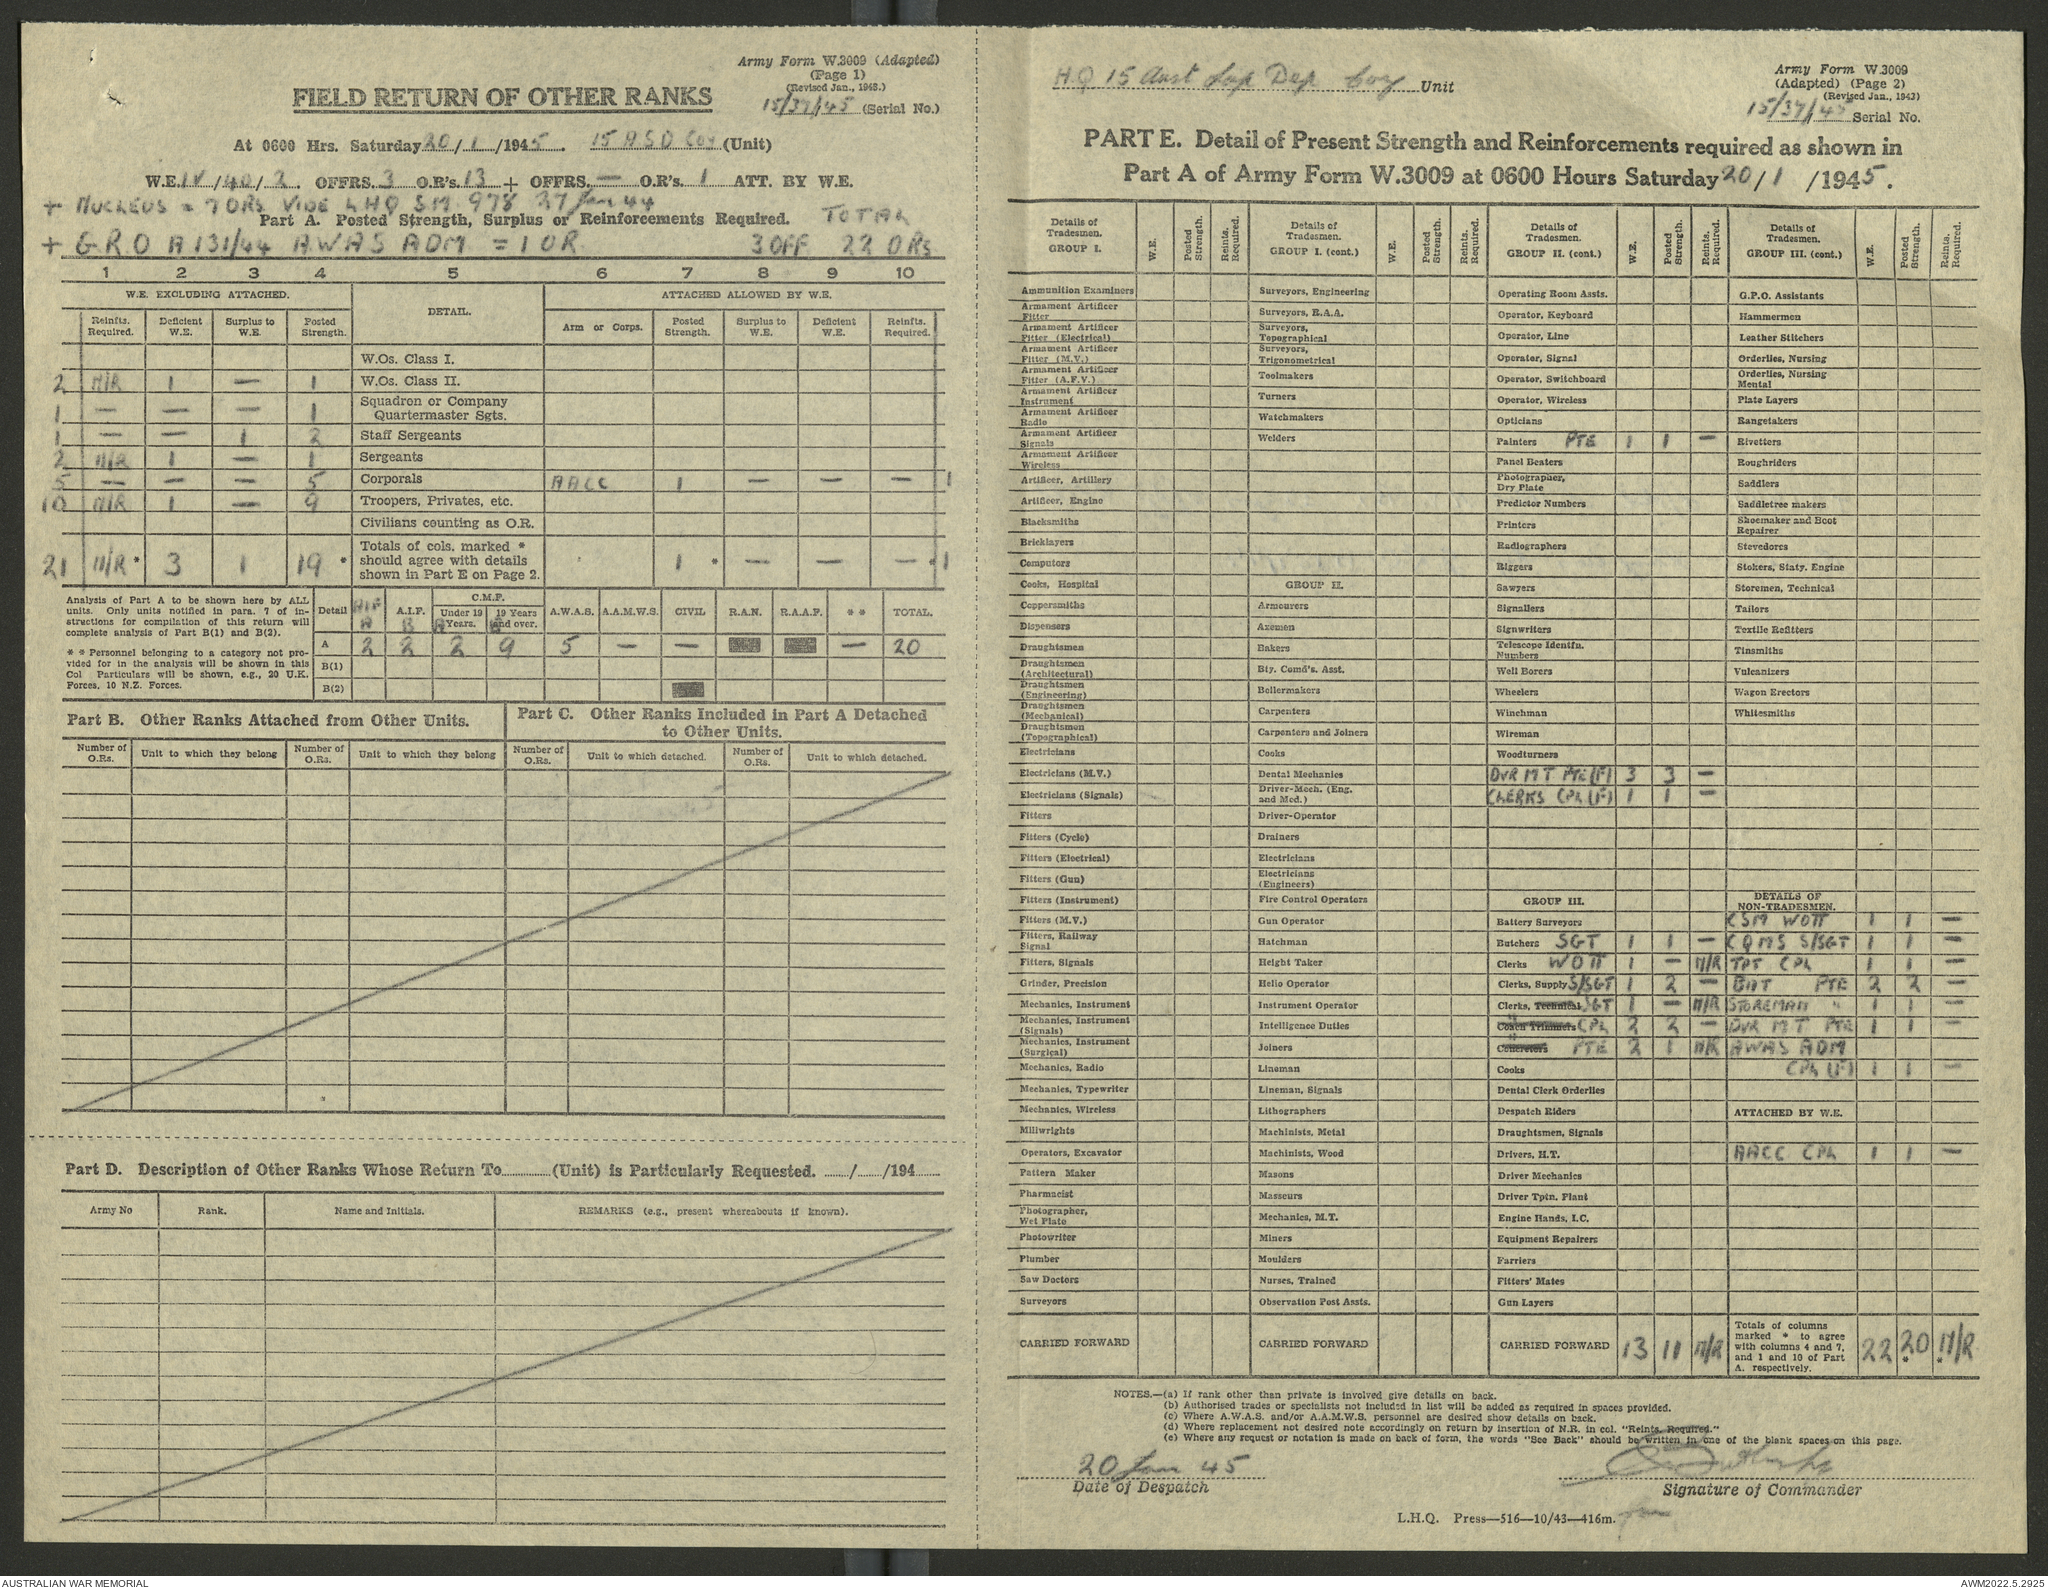 Army Form W.3009 (Adapted)
(Page 1)
(Revised Jan., 1943.)
15/37/45 (Serial No.)
FIELD RETURN OF OTHER RANKS
At 0600 Hrs. Saturday 20/1/1945. 15 A S D Coy (Unit)
W.E. IV/40/2. OFFRS. 3 O.R's. 13 + OFFRS. — O.R's. 1 ATT. BY W.E.
+ NUCLEUS = 7 ORs VIDE LHQ SM 978 27 Jan 44
Part A. Posted Strength, Surplus or Reinforcements Required. TOTAL
+ G.R.O A131/44 AWAS ADM = 1 OR 3 OFF 22 ORs
1 2 3 4 5 6 7 8 9 10
W.E. EXCLUDING ATTACHED. DETAIL. ATTACHED ALLOWED BY W.E.
Reinfts. Required. Deficient W.E. Surplus to W.E. Posted Strength. Arm or Corps. Posted Strength. Surplus to W.E. Deficient W.E. Reinfts. Required.
W.Os. Class I.
2 N/R 1 — 1 W.Os. Class II.
1 — — — 1 Squadron or Company Quartermaster Sgts.
1 — — 1 2 Staff Sergeants
2 N/R 1 — 1 Sergeants
5 — — — 5 Corporals AACC 1 — — — 1
10 N/R 1 — 9 Troopers, Privates, etc.
Civilians counting as O.R.
21 N/R * 3 1 19 * Totals of cols. marked * should agree with details shown in Part E on Page 2. 1 * — — — * 1
Analysis of Part A to be shown here by ALL units. Only units notified in para. 7 of instructions for compilation of this return will complete analysis of Part B(1) and B(2).
* * Personnel belonging to a category not provided for in the analysis will be shown in this Col Particulars will be shown, e.g., 20 U.K. Forces, 10 N.Z. Forces.
Detail AIF A A.I.F. B C.M.F. Under 19 Years. A 19 Years and over. B A.W.A.S. A.A.M.W.S. CIVIL R.A.N. R.A.A.F. * * TOTAL.
A 2 2 2 9 5 — — — 20
B(1)
B(2)
Part B. Other Ranks Attached from Other Units.
Part C. Other Ranks Included in Part A Detached to Other Units.
Number of O.Rs. Unit to which they belong Number of O.Rs. Unit to which they belong Number of O.Rs. Unit to which detached. Number of O.Rs. Unit to which detached.
Part D. Description of Other Ranks Whose Return To (Unit) is Particularly Requested. / /194
Army No Rank. Name and Initials. REMARKS (e.g., present whereabouts if known).
H.Q 15 Aust Sup Dep Coy Unit
Army Form W.3009
(Adapted) (Page 2)
(Revised Jan., 1943)
15/37/45 Serial No.
PART E. Detail of Present Strength and Reinforcements required as shown in
Part A of Army Form W.3009 at 0600 Hours Saturday 20/1/1945.
Details of Tradesmen. GROUP I. W.E. Posted Strength. Reints. Required.
Ammunition Examiners
Armament Artificer Fitter
Armament Artificer Fitter (Electrical)
Armament Artificer Fitter (M.V.)
Armament Artificer Fitter (A.F.V.)
Armament Artificer Instrument
Armament Artificer Radio
Armament Artificer Signals
Armament Artificer Wireless
Artificer, Artillery
Artificer, Engine
Blacksmiths
Bricklayers
Computors
Cooks, Hospital
Coppersmiths
Dispensers
Draughtsmen
Draughtsmen (Architectural)
Draughtsmen (Engineering)
Draughtsmen (Mechanical)
Draughtsmen (Topographical)
Electricians
Electricians (M.V.)
Electricians (Signals)
Fitters
Fitters (Cycle)
Fitters (Electrical)
Fitters (Gun)
Fitters (Instrument)
Fitters (M.V.)
Fitters, Railway Signal
Fitters, Signals
Grinder, Precision
Mechanics, Instrument
Mechanics, Instrument (Signals)
Mechanics, Instrument (Surgical)
Mechanics, Radio
Mechanics, Typewriter
Mechanics, Wireless
Millwrights
Operators, Excavator
Pattern Maker
Pharmacist
Photographer, Wet Plate
Photowriter
Plumber
Saw Doctors
Surveyors
CARRIED FORWARD
Details of Tradesmen. GROUP I. (cont.) W.E. Posted Strength. Reints. Required.
Surveyors, Engineering
Surveyors, R.A.A.
Surveyors, Topographical
Surveyors, Trigonometrical
Toolmakers
Turners
Watchmakers
Welders
GROUP II.
Armourers
Axemen
Bakers
Bty. Comd's. Asst.
Boilermakers
Carpenters
Carpenters and Joiners
Cooks
Dental Mechanics
Driver-Mech. (Eng. and Med.)
Driver-Operator
Drainers
Electricians
Electricians (Engineers)
Fire Control Operators
Gun Operator
Hatchman
Height Taker
Helio Operator
Instrument Operator
Intelligence Duties
Joiners
Lineman
Lineman, Signals
Lithographers
Machinists, Metal
Machinists, Wood
Masons
Masseurs
Mechanics, M.T.
Miners
Moulders
Nurses, Trained
Observation Post Assts.
CARRIED FORWARD
Details of Tradesmen. GROUP II. (cont.) W.E. Posted Strength. Reints. Required.
Operating Room Assts.
Operator, Keyboard
Operator, Line
Operator, Signal
Operator, Switchboard
Operator, Wireless
Opticians
Painters PTE 1 1 —
Panel Beaters
Photographer, Dry Plate
Predictor Numbers
Printers
Radiographers
Riggers
Sawyers
Signallers
Signwriters
Telescope Identfn. Numbers
Well Borers
Wheelers
Winchman
Wireman
Woodturners
DVR M T PTE (F) 3 3 —
CLERKS CPL (F) 1 1 —
GROUP III.
Battery Surveyors
Butchers SGT 1 1 —
Clerks WOII 1 — N/R
Clerks, Supply S/SGT 1 2 —
Clerks, Technical SGT 1 — N/R
Coach Trimmers " CPL 2 2 —
Concreters " PTE 2 1 N/R
Cooks
Dental Clerk Orderlies
Despatch Riders
Draughtsmen, Signals
Drivers, H.T.
Driver Mechanics
Driver Tptn. Plant
Engine Hands, I.C.
Equipment Repairers
Farriers
Fitters' Mates
Gun Layers
CARRIED FORWARD 13 11 N/R
Details of Tradesmen. GROUP III. (cont.) W.E. Posted Strength. Reints. Required.
G.P.O. Assistants
Hammermen
Leather Stitchers
Orderlies, Nursing
Orderlies, Nursing Mental
Plate Layers
Rangetakers
Rivetters
Roughriders
Saddlers
Saddletree makers
Shoemaker and Boot Repairer
Stevedores
Stokers, Staty. Engine
Storemen, Technical
Tailors
Textile Refitters
Tinsmiths
Vulcanizers
Wagon Erectors
Whitesmiths
DETAILS OF NON-TRADESMEN.
CSM WOII 1 1 —
CQMS S/SGT 1 1 —
TPT CPL 1 1 —
BAT PTE 2 2 —
STOREMAN " 1 1 —
DVR M T PTE 1 1 —
AWAS ADM
CPL (F) 1 1 —
ATTACHED BY W.E.
AACC CPL 1 1 —
Totals of columns marked * to agree with columns 4 and 7, and 1 and 10 of Part A. respectively. 22 20 * N/R *
NOTES.—(a) If rank other than private is involved give details on back.
(b) Authorised trades or specialists not included in list will be added as required in spaces provided.
(c) Where A.W.A.S. and/or A.A.M.W.S. personnel are desired show details on back.
(d) Where replacement not desired note accordingly on return by insertion of N.R. in col. "Reints. Required."
(e) Where any request or notation is made on back of form, the words "See Back" should be written in one of the blank spaces on this page.
20 Jan 45
Date of Despatch
Signature of Commander
L.H.Q. Press—516—10/43—416m.
AUSTRALIAN WAR MEMORIAL
AWM2022.5.2925